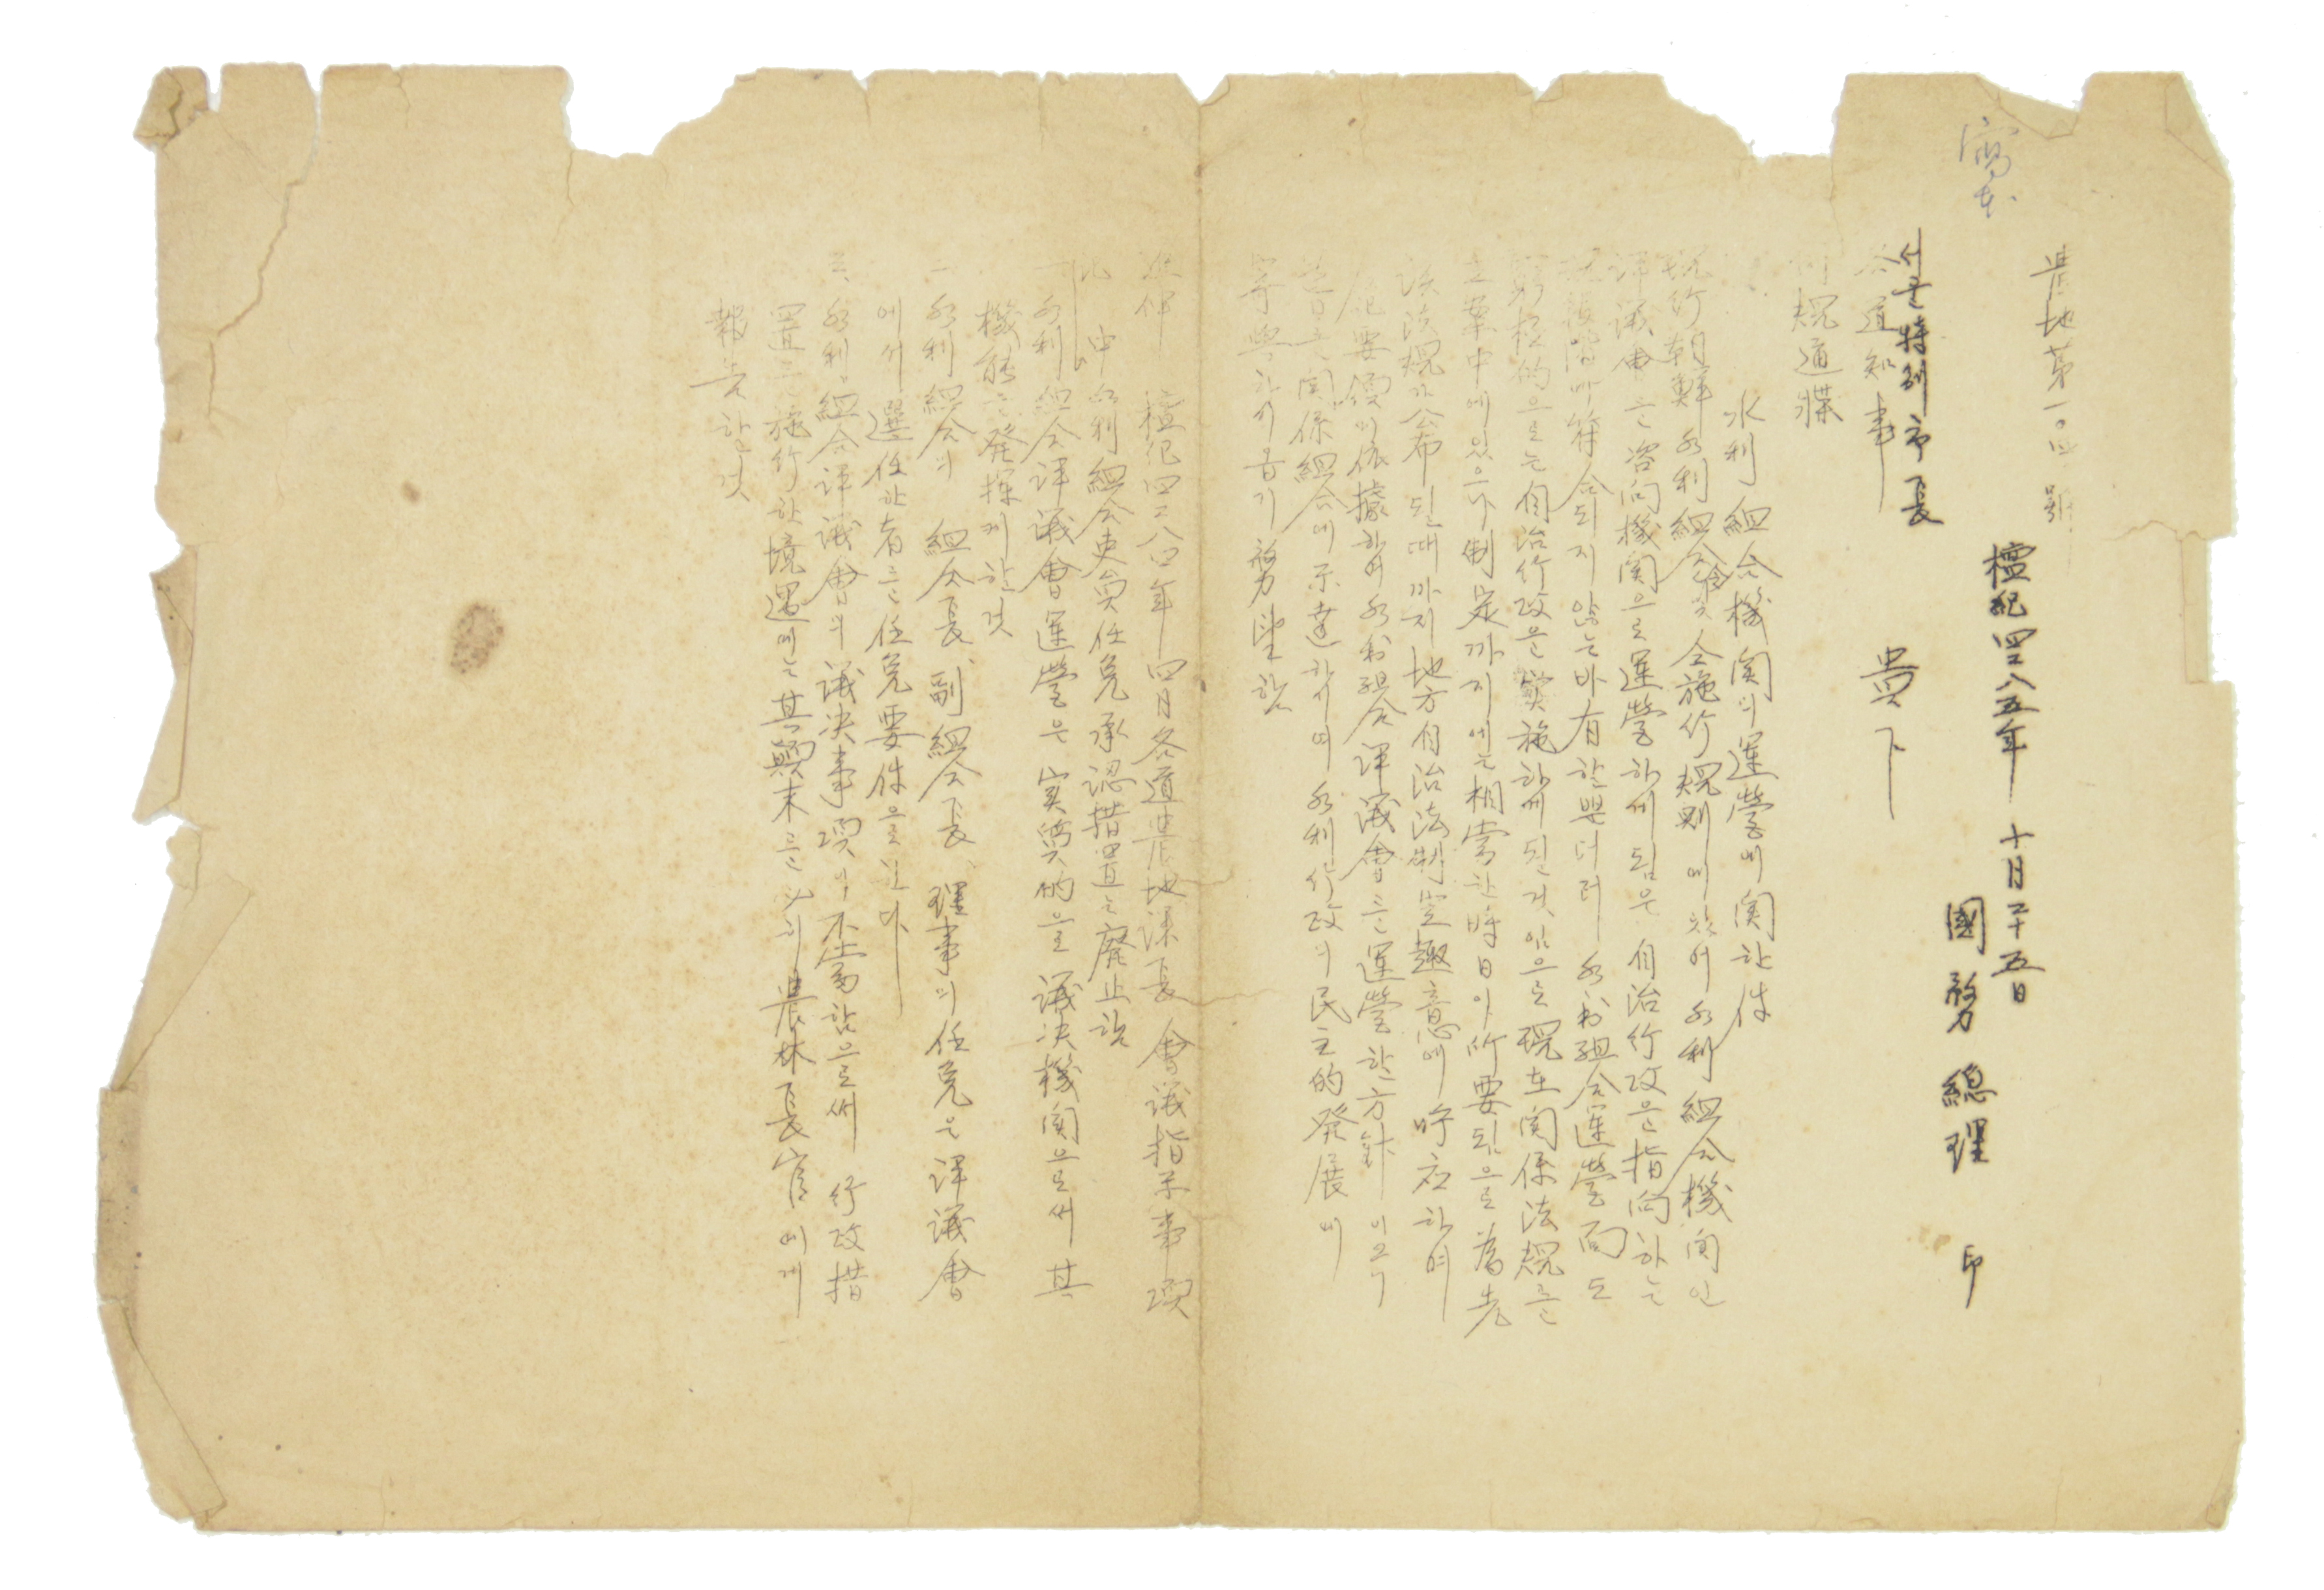 寫本
農地第一〇四號
檀紀四二八五年 十月二十五日
國務總理 印
서울特別市長
各道知事 貴下
例規通牒
水利組合機関의運營에関한件
現行朝鮮水利組合令 仝施行規則에있어水利組合機関인
評議會를咨问機関으로運營하게됨은自治行政을指向하는
符合되지않는바有할뿐더러水利組合運營面도
積極的으로는自治行政을實施하게된것임으로現在関係法規를
立案中에있으나制定까지에는相當한時日이所要됨으로爲先
該法規가公布될때까지地方自治法制定趣意에呼应하여
記要領에依據하여水利組合評議會를運營할方針이오니
旨를関係組合에示達하시며水利行政의民主的発展에
寄與하시옵기務望함
檀紀四二八四年四月各道農地課長會議指示事項
中水利組合吏員任免承認措置는廃止함
一、水利組合評議會運營은実質的으로議決機関으로써其
機能을発揮케할것
二、水利組合의 組合長、副組合長、理事의任免은評議會
에서選任한者를任免要件으로한다
三、水利組合評議會의議決事項이不當함으로써 行政措
置를施行한境遇에는其顚末를 農林長官에게
報告할것